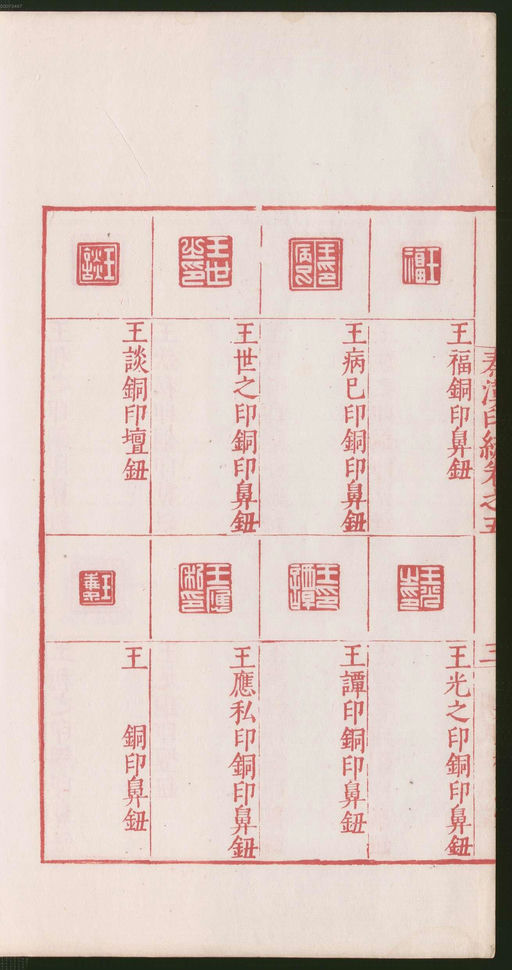 秦漢印統卷之五
三
王福銅印鼻鈕
王病巳印銅印鼻鈕
王世之印銅印鼻鈕
王談銅印壇鈕
王光之印銅印鼻鈕
王譚印銅印鼻鈕
王應私印銅印鼻鈕
王　銅印鼻鈕